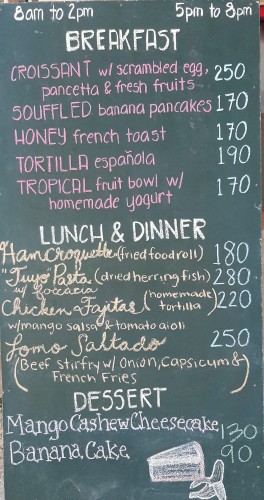 8am to 2pm 5pm to 8pm
BREAKFAST
CROISSANT w/ scrambled egg, 250
pancetta & fresh fruits
SOUFFLED banana pancakes 170
HONEY french toast 170
TORTILLA española 190
TROPICAL fruit bowl w/ 170
homemade yogurt
LUNCH & DINNER
Ham Croquette (fried food roll) 180
"Tuyo" Pasta (dried herring fish) 280
w/ foccacia
Chicken Fajitas (homemade tortilla) 220
w/ mango salsa & tomato aioli
Lomo Saltado 250
(Beef stirfry w/ Onion, Capsicum &
French Fries)
DESSERT
Mango Cashew Cheesecake 130
Banana Cake 90